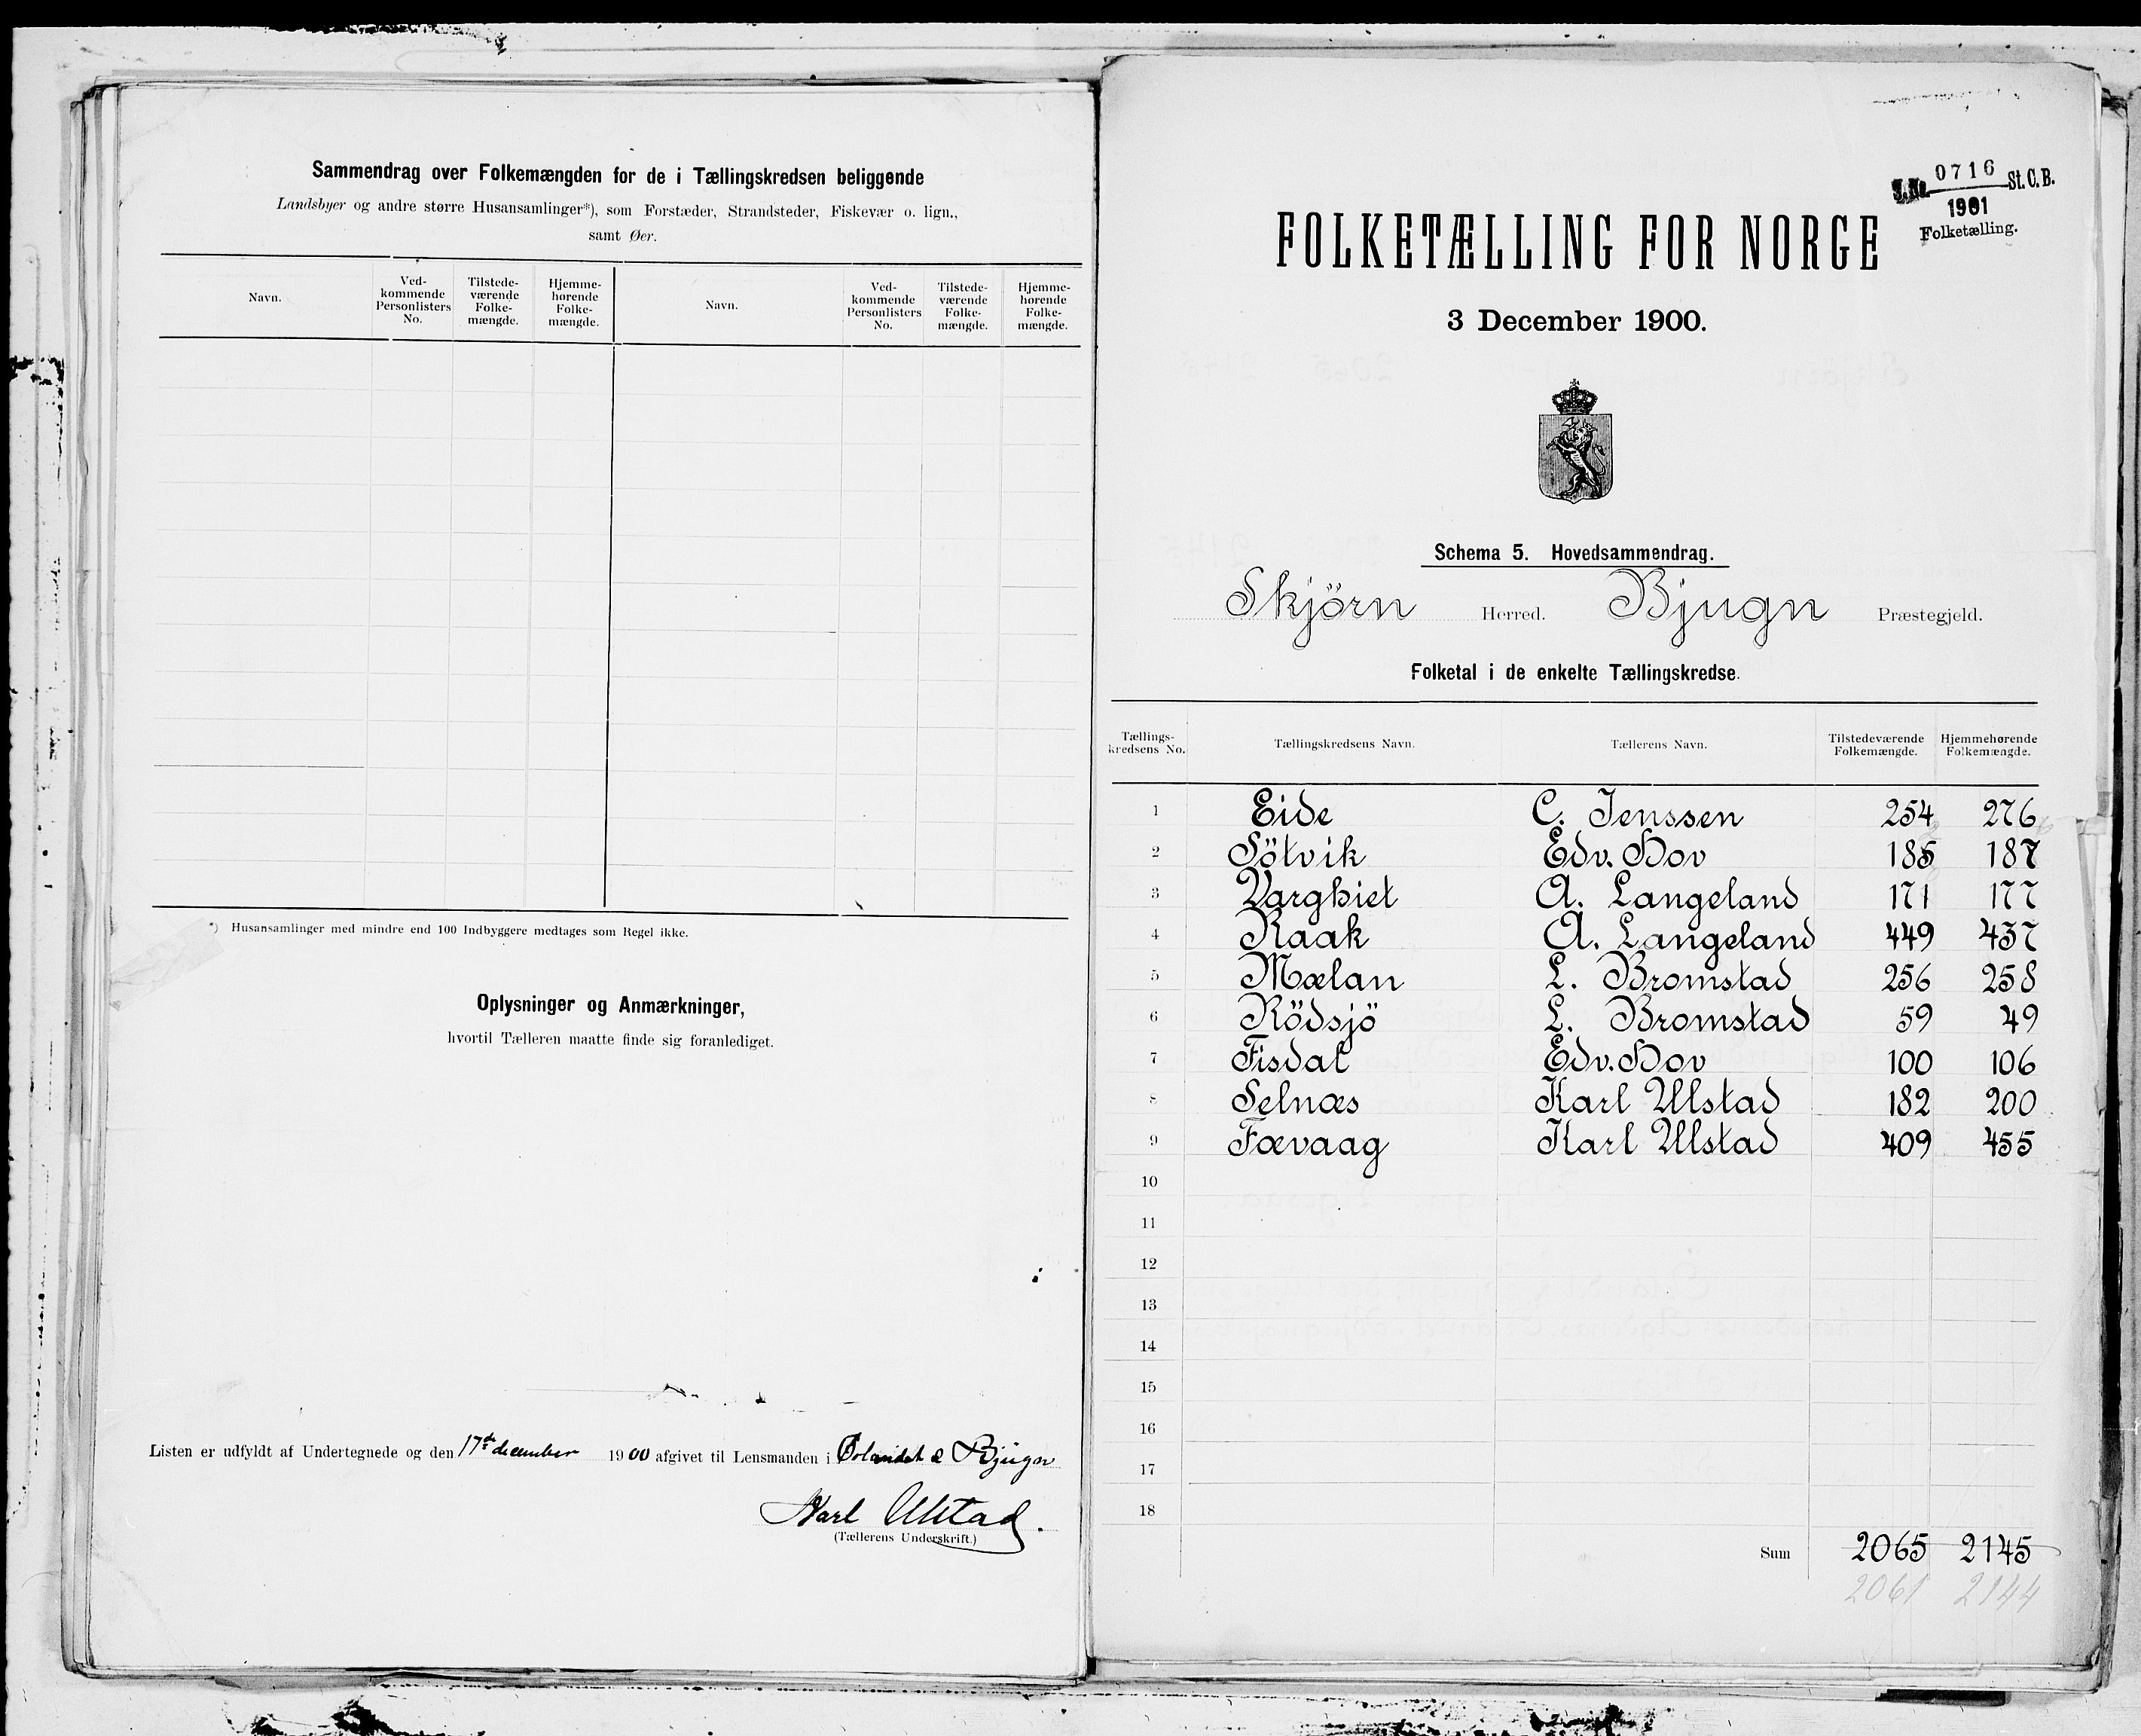 Sammendrag over Folkemængden for de i Tællingskredsen beliggende
Landsbyer og andre større Husansamlinger*), som Forstæder, Strandsteder, Fiskevær o. lign.,
samt Øer.
Navn. Ved-kommende Personlisters No. Tilstede-værende Folke-mængde. Hjemme-hørende Folke-mængde. Navn. Ved-kommende Personlisters No. Tilstede-værende Folke-mængde. Hjemme-hørende Folke-mængde.
*) Husansamlinger med mindre end 100 Indbyggere medtages som Regel ikke.
Oplysninger og Anmærkninger,
hvortil Tælleren maatte finde sig foranlediget.
Listen er udfyldt af Undertegnede og den 17de december 1900 afgivet til Lensmanden i Ørlandet & Bjugn
Karl Ulstad.
(Tællerens Underskrift.)
J.No. 0716 St.C.B.
1901
Folketælling.
FOLKETÆLLING FOR NORGE
3 December 1900.
Schema 5. Hovedsammendrag.
Skjörn Herred. Bjugn Præstegjeld.
Folketal i de enkelte Tællingskredse.
Tællings-kredsens No. Tællingskredsens Navn. Tællerens Navn. Tilstedeværende Folkemængde. Hjemmehørende Folkemængde.
1 Eide C. Jenssen 254 276
2 Sötvik Edv. Hov 185 187
3 Varghiet A. Langeland 171 177
4 Raak A. Langeland 449 437
5 Mælan L. Bromstad 256 258
6 Rödsjö L. Bromstad 59 49
7 Fisdal Edv. Hov 100 106
8 Selnæs Karl Ulstad 182 200
9 Fævaag Karl Ulstad 409 455
10
11
12
13
14
15
16
17
18
Sum 2065 2145
2061 2144